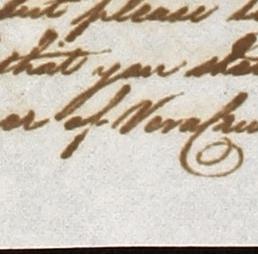 but please
that you
er of Vera Cru